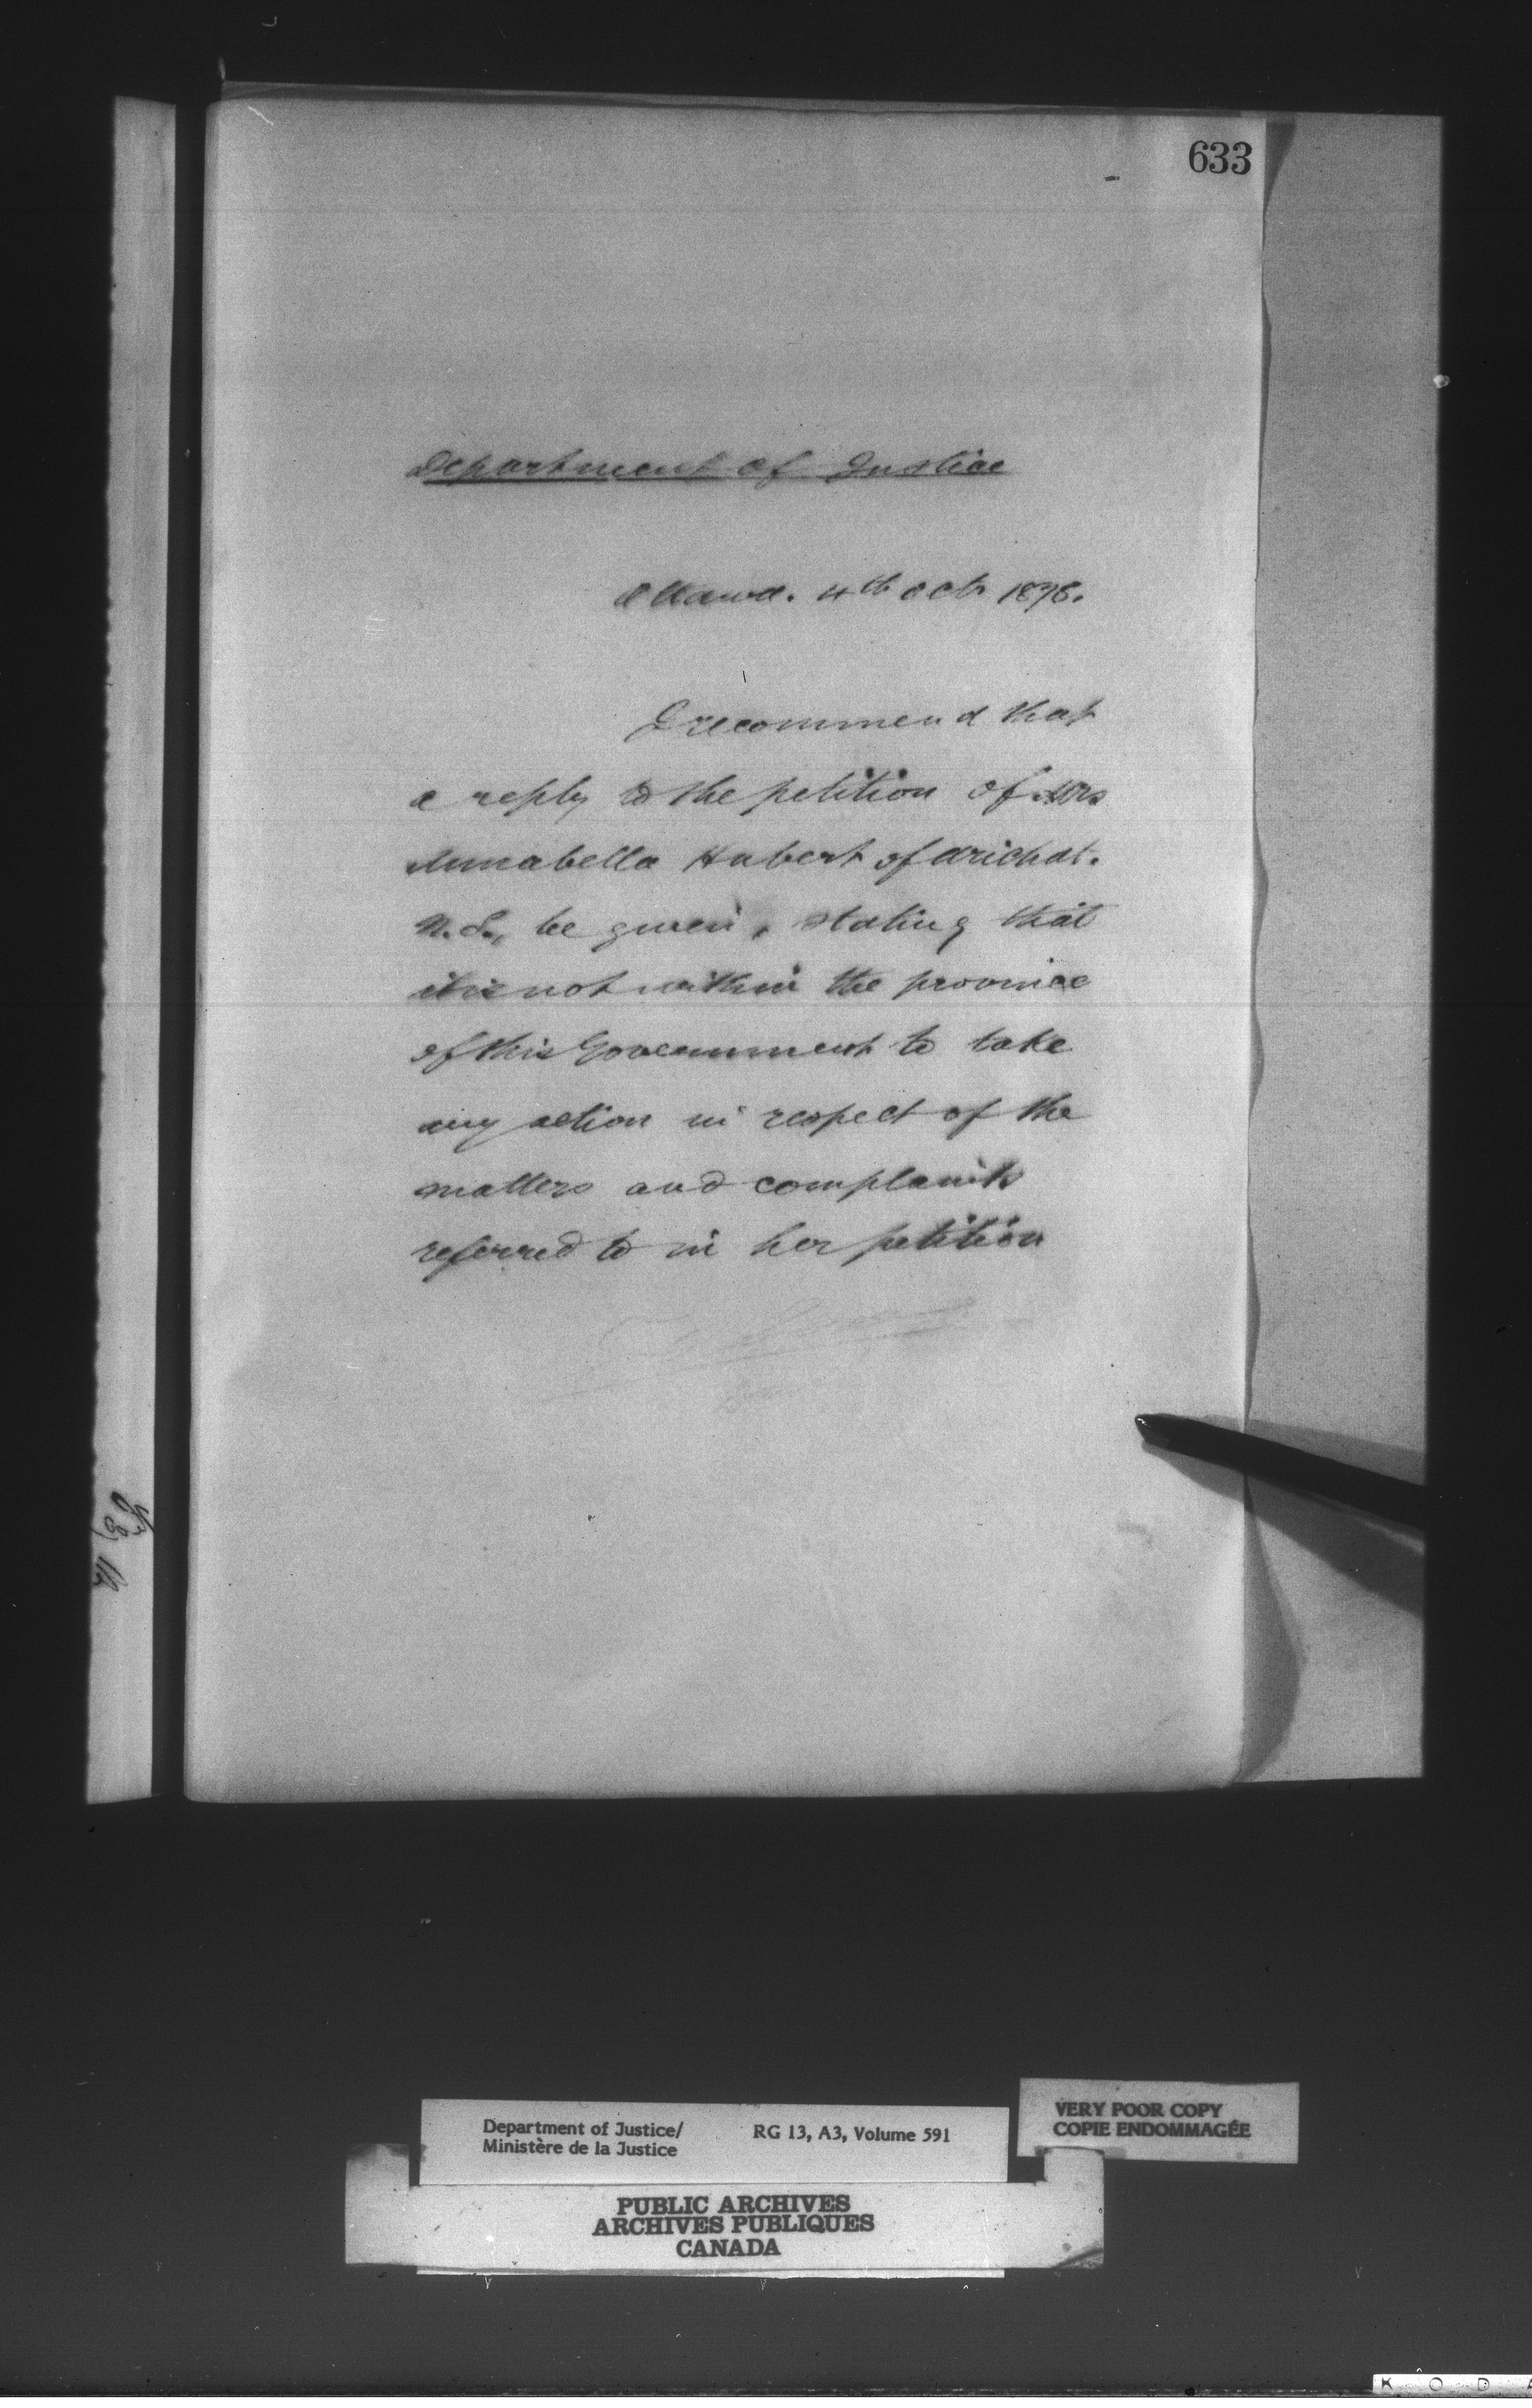 633
Department of Justice
Ottawa. 4th Octr 1878.
I recommend that
a reply to the petition of Mrs
Annabella Hubert of Arichat.
N.S., be given, stating that
it is not within the province
of this Government to take
any action in respect of the
matters and complaints
referred to in her petition
Department of Justice/
Ministère de la Justice
RG 13, A3, Volume 591
VERY POOR COPY
COPIE ENDOMMAGÉE
PUBLIC ARCHIVES
ARCHIVES PUBLIQUES
CANADA
K O D A